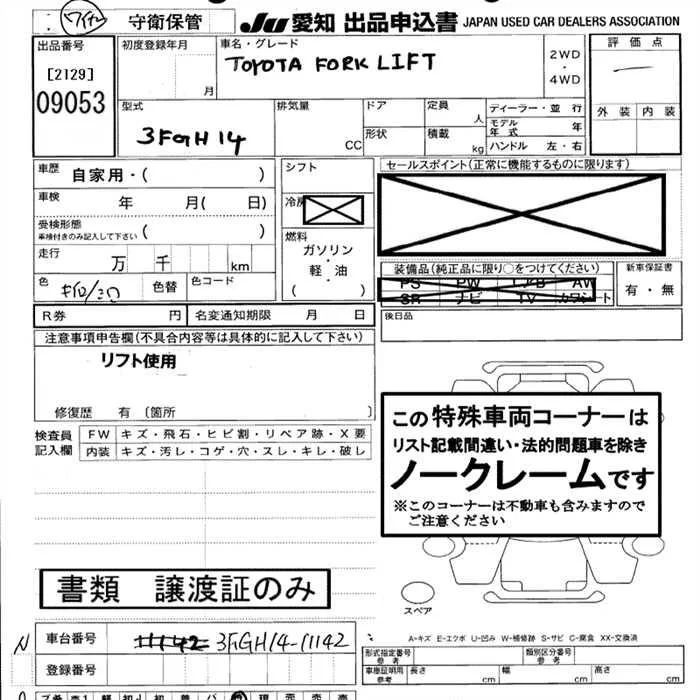 守衛保管
JU 愛知 出品申込書 JAPAN USED CAR DEALERS ASSOCIATION
出品番号
[2129]
09053
初度登録年月
月
車名・グレード
TOYOTA FORK LIFT
2WD
・
4WD
評価点
外装 内装
型式
3FGH14
排気量
CC
ドア
形状
定員
人
積載
kg
ディーラー・並行
モデル年式 年
ハンドル 左・右
車歴 自家用・( )
車検 年 月( 日)
受検形態
車検付きのみ記入して下さい ( )
走行 万 千 km
色
色替
色コード
シフト
冷房
燃料
ガソリン
・
軽・油
( )
セールスポイント(正常に機能するものに限ります)
装備品(純正品に限り○をつけてください)
PS PW エアB AW
SR ナビ TV カワシート
新車保証書
有・無
R券 円 名変通知期限 月 日
後日品
注意事項申告欄(不具合内容等は具体的に記入して下さい)
リフト使用
修復歴 有 〔箇所 〕
検査員
記入欄
FW キズ・飛石・ヒビ割・リペア跡・X要
内装 キズ・汚レ・コゲ・穴・スレ・キレ・破レ
この特殊車両コーナーは
リスト記載間違い・法的問題車を除き
ノークレームです
※このコーナーは不動車も含みますので
ご注意ください
書類 譲渡証のみ
スペア
N
車台番号 3FGH14-11142
登録番号
A-キズ E-エクボ U-凹み W-補修跡 S-サビ C-腐食 XX-交換済
形式指定番号
参考
類別区分番号
参考
車庫証明用
参考
長さ cm 幅 cm 高さ cm